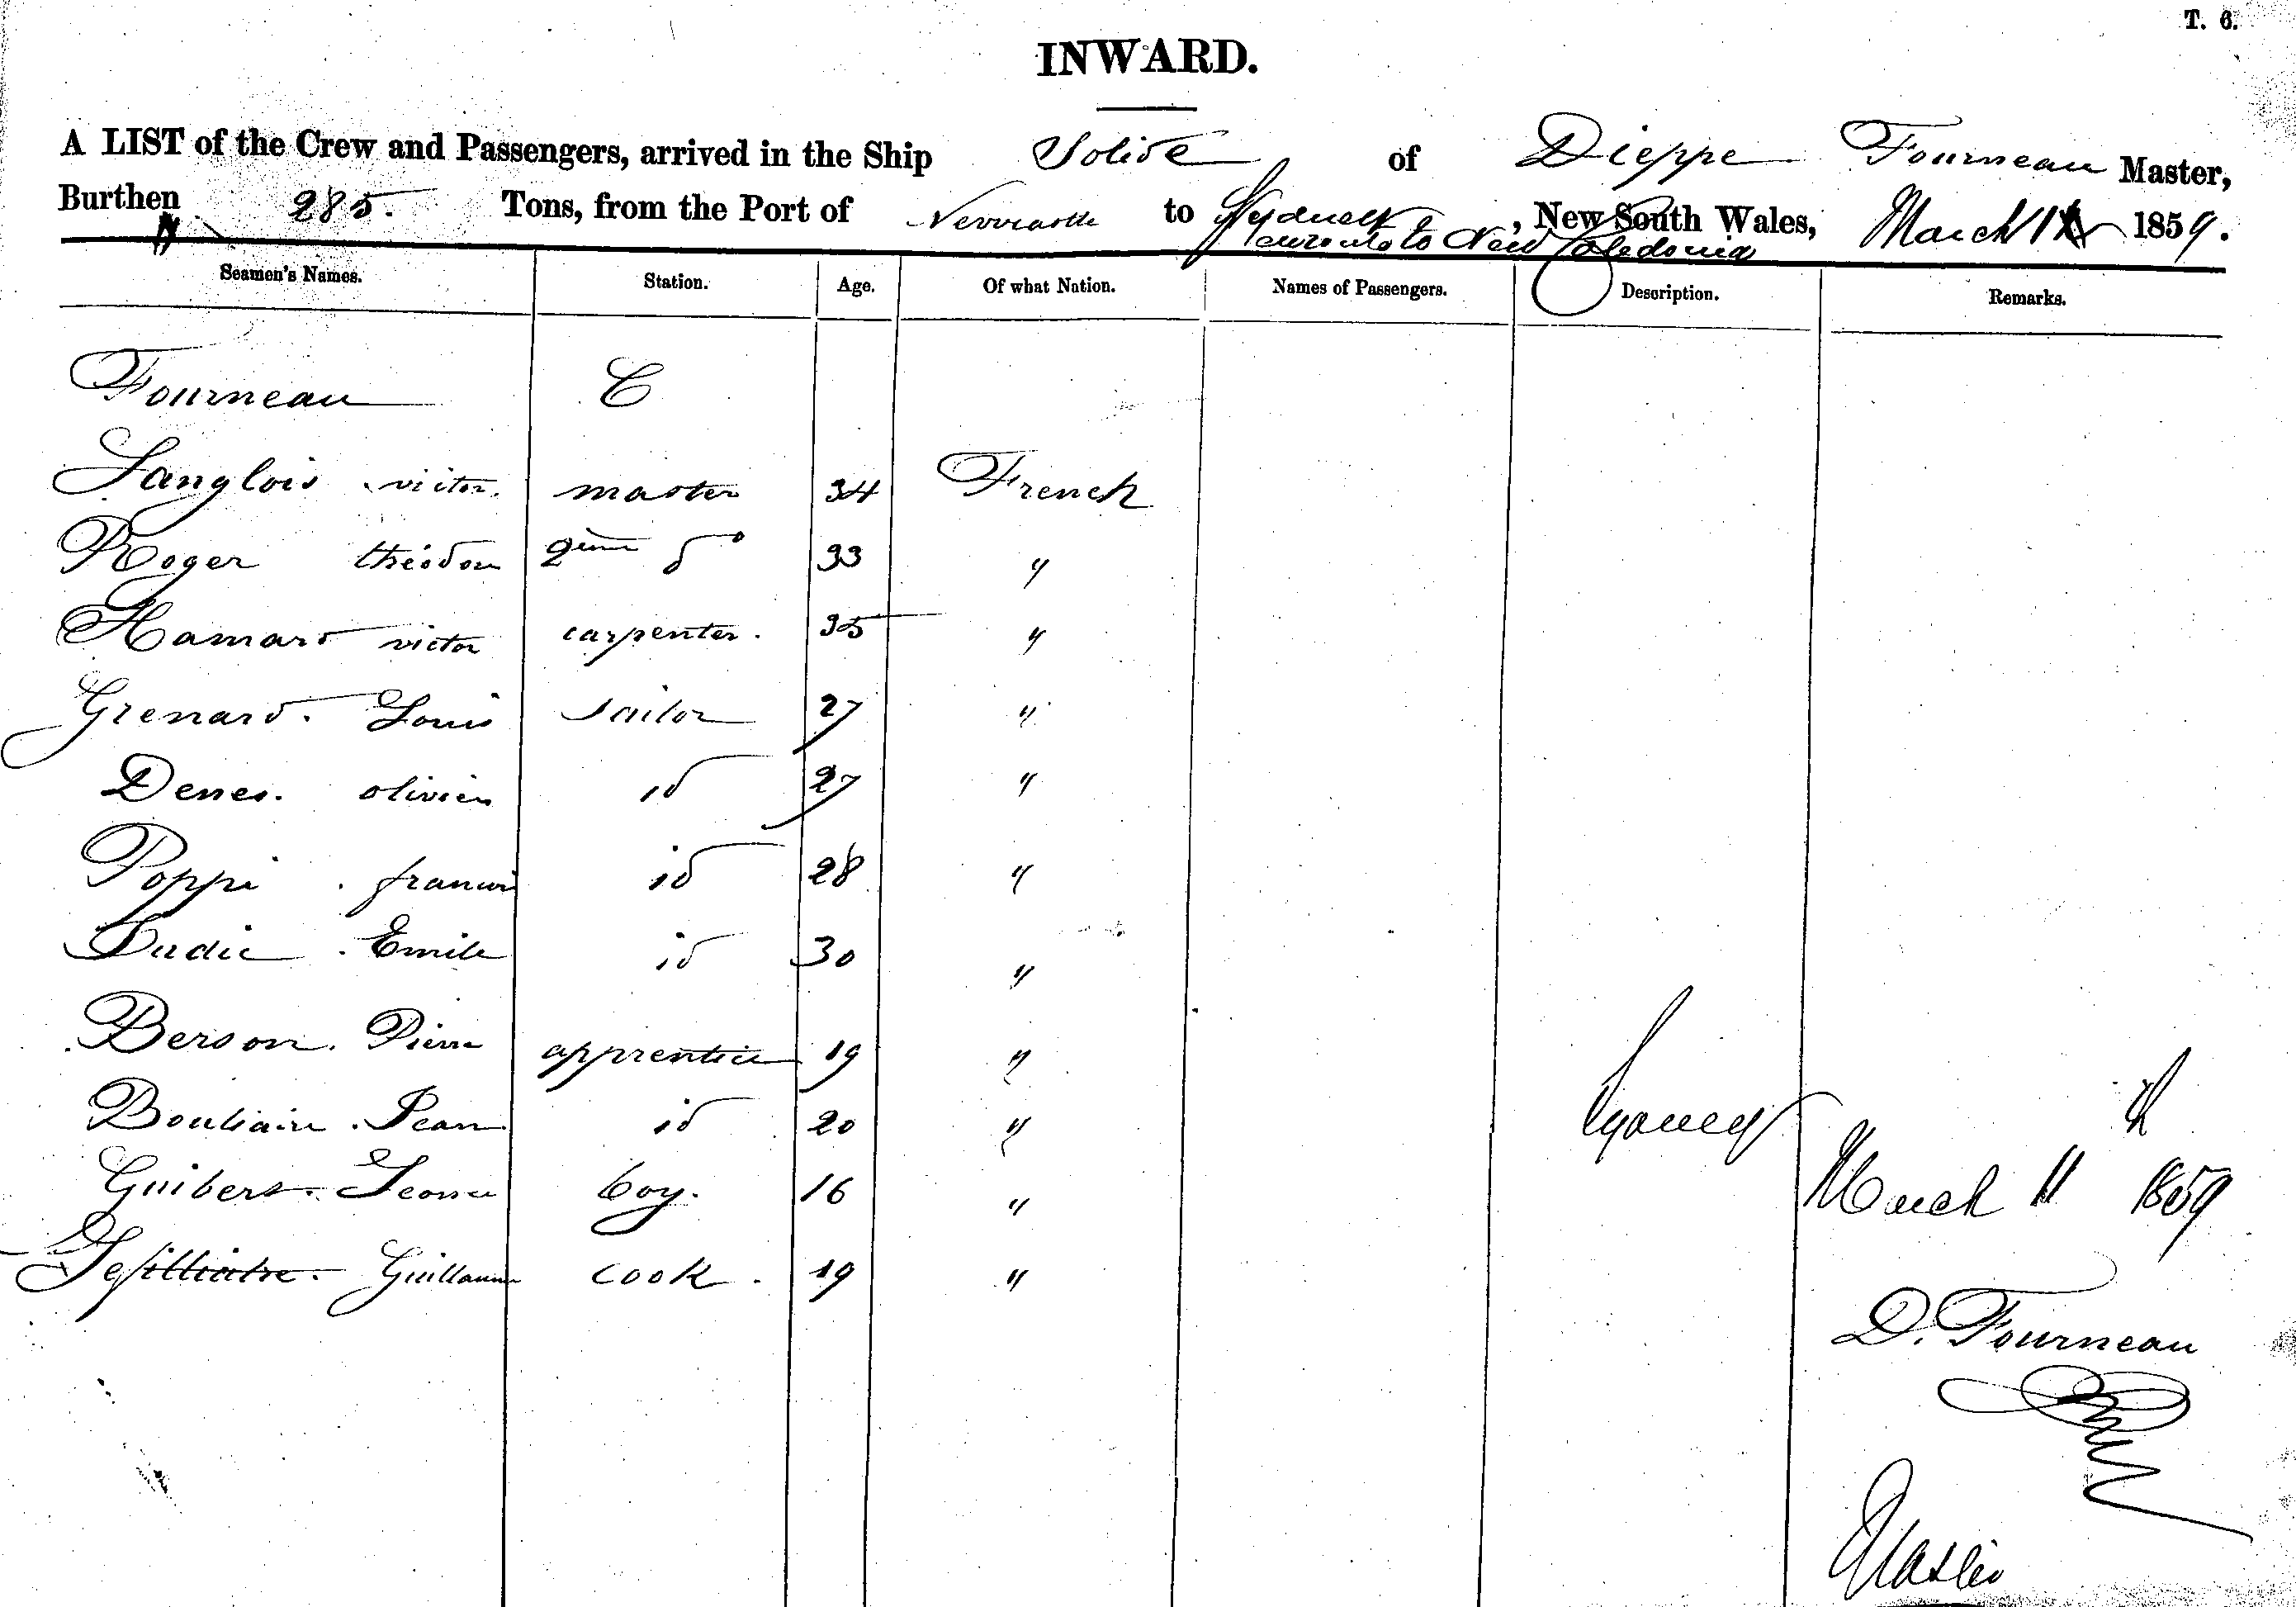 T. 6.
INWARD.
A LIST of the Crew and Passengers, arrived in the Ship Solide of Dieppe Fourneau Master,
Burthen 285. Tons, from the Port of Newcastle to Sydney, New South Wales, March 11 1859.
to New Caledonia
Seamen's Names. Station. Age. Of what Nation. Names of Passengers. Description. Remarks.
Fourneau C
Langlois victor. master 34 French
Roger théodore 2eme do 33 "
Hamard victor carpenter. 35 "
Grenard. Louis sailor 27 "
Denes. olivier id 27 "
Poppi. francois id 28 "
Dudic. Emile id 30 "
Berson. Pierre apprentice 19 "
Jean id 20 "
Guibert. boy. 16 "
Guillaume cook. 19 "
Sydney
March 11th 1859
D. Fourneau
Master